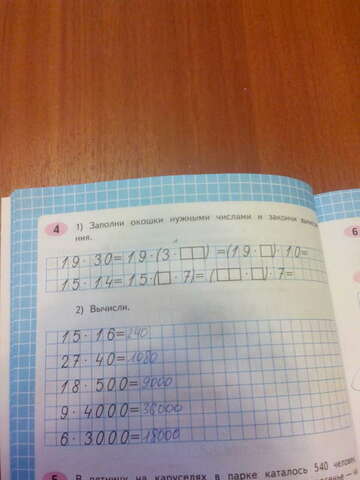 4 1) Заполни окошки нужными числами и закончи
ния.
19·30=19·(3·□□)=(19·□)·10=
15·14=15·(□·7)=(□□·□)·7=
2) Вычисли.
15·16=240
27·40=1080
18·500=9000
9·4000=36000
6·3000=18000
5 В пятницу на каруселях в парке каталось 540 человек,
6